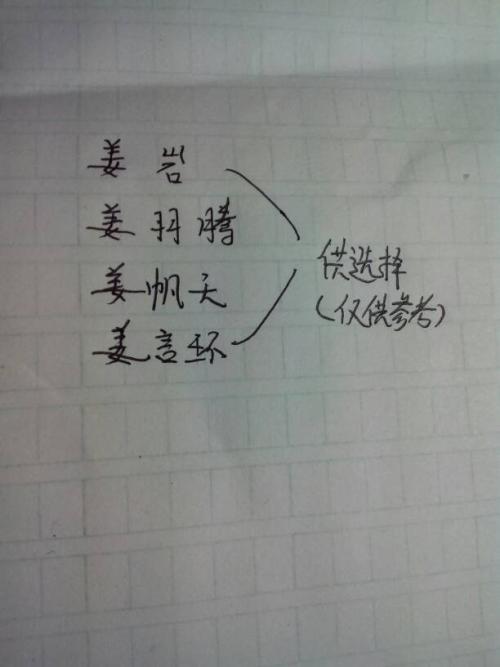 姜岩
姜羽腾
姜帆天
姜言环
供选择
(仅供参考)